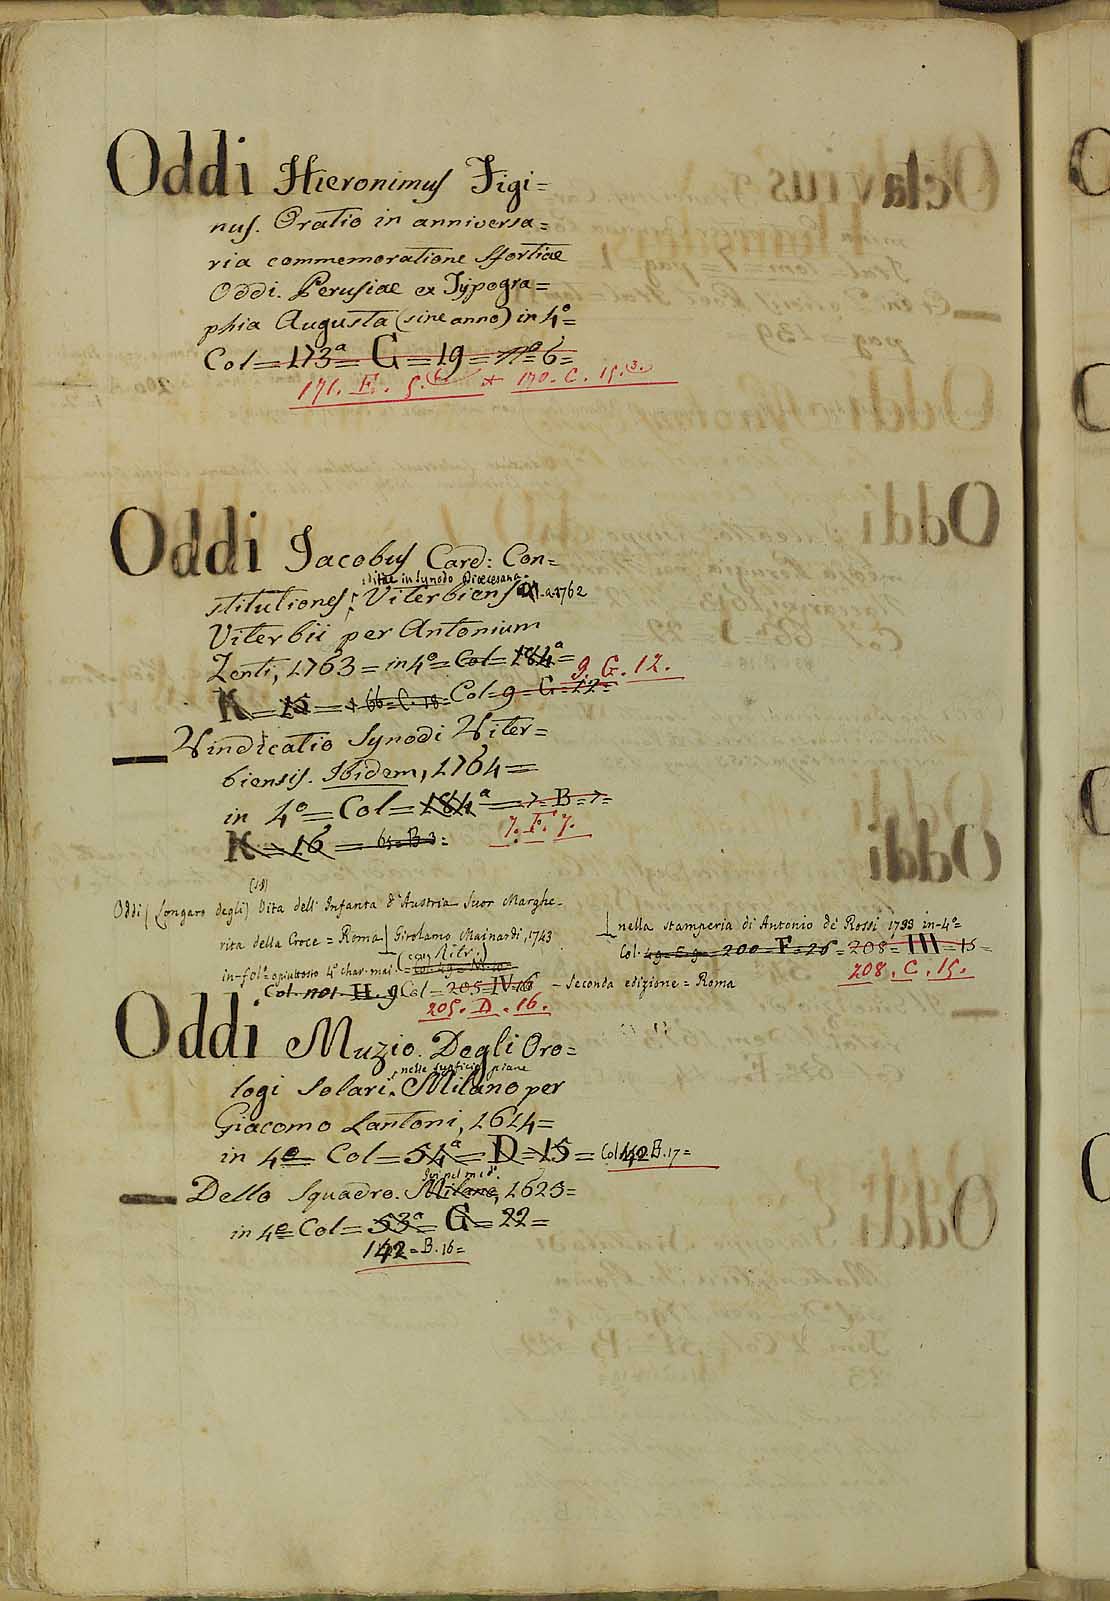 Oddi Hieronimus Figi=
nus. Oratio in anniversa=
ria commemoratione Sfortiae
Oddi. Perusiae ex Typogra=
phia Augusta (sine anno) in 4º=
Col=173ª G=19=nº 6=
171. E. 5. + 170. C. 15.
Oddi Jacobus Card: Con=
ditae in Synodo Dioecesana
stitutiones Viterbiens a. 1762
Viterbii per Antonium
Zenti, 1763=in 4º=Col=184ª=
9. G. 12.
K=15= 166=C.18= Col=9=G=22=
Vindicatio Synodi Viter=
biensis. Ibidem, 1764=
in 4º=Col=184ª=7=B=7=
7. F. 7.
K=16 = 65=B 3=
Oddi (Longaro degli) Vita dell' Infanta d'Austria Suor Marghe-
rita della Croce = Roma Girolamo Mainardi, 1743
in-folº opiuttosto 4º char. mai. (con Ritr.)
Col. H. 9 Col=205=IV.16 - Seconda edizione = Roma
205. D. 16.
nella stamperia di Antonio de' Rossi 1733 in-4º=
Col. 49=E.9= 200=F=26=208=III=15=
208. C. 15.
Oddi Muzio. Degli Oro=
nelle superficie piane
logi Solari. Milano per
Giacomo Lantoni, 1614=
in 4º= Col=54ª=D=15= Col 142 B. 17=
Dello Squadro. Milano, 1625=
in 4º= Col=53ª=G=22=
142=B. 16=